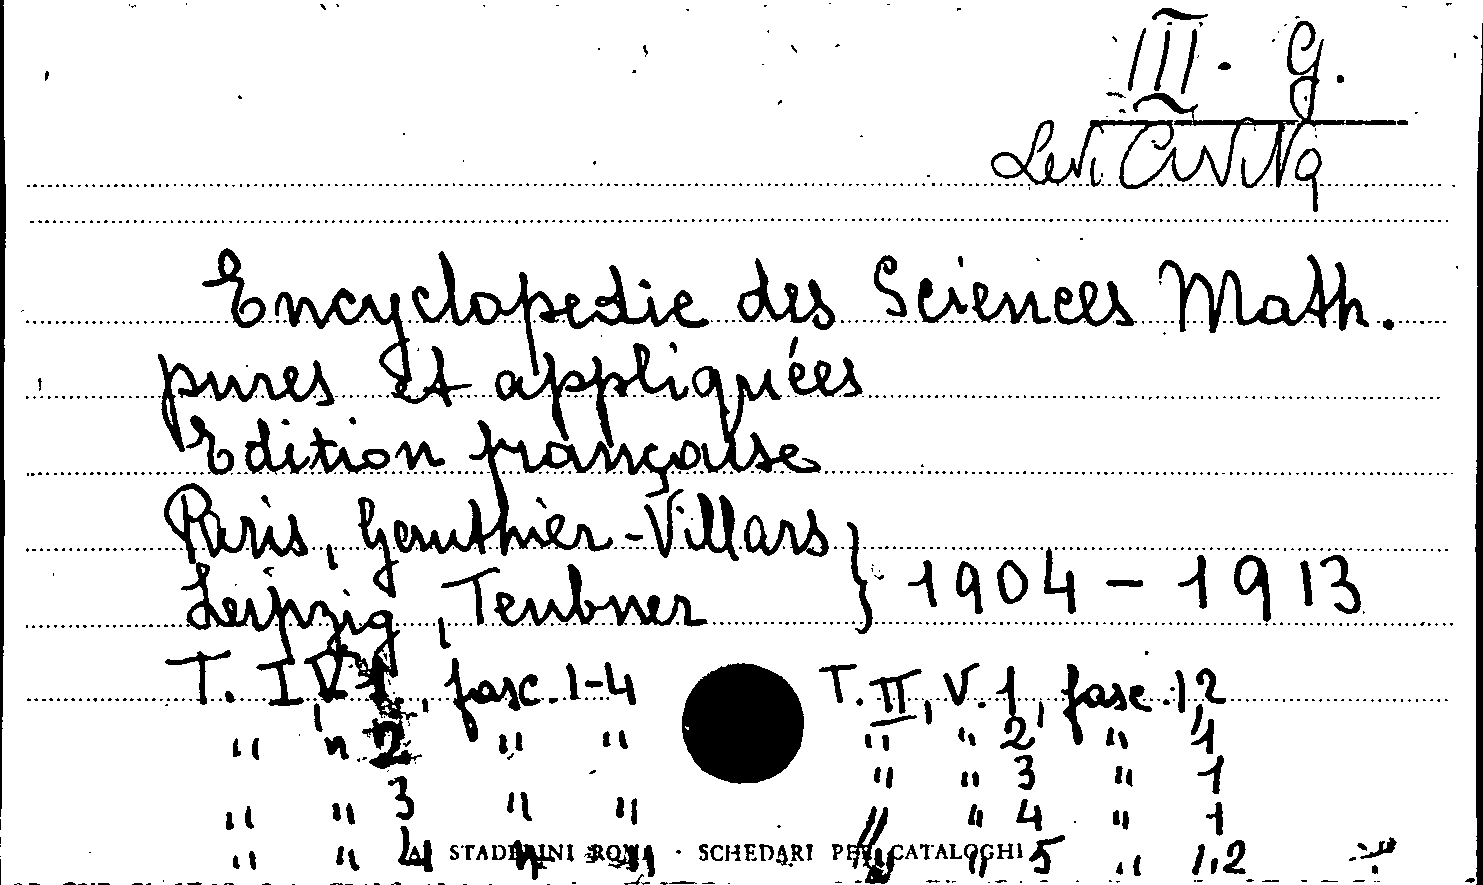 III. G.
Levi Civita
Encyclopedie des Sciences Math.
pures et appliquées
Edition française
Paris, Gauthier-Villars } 1904-1913
Leipzig, Teubner
T. I, V. 1, fasc. 1-4 T. II, V. 1, fasc. 1,2
" " 2 " " " " 2 " 1
" " 3 " " " " 3 " 1
" " 4 " " " " 4 " 1
" 5 " 1,2
STADERINI ROMA · SCHEDARI PER CATALOGHI